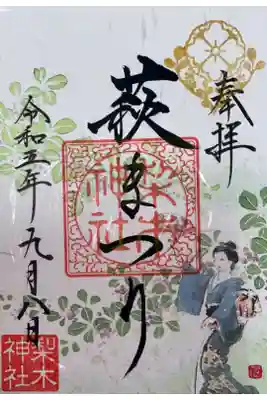 奉拝
萩まつり
梨木神社
令和五年九月八日
梨木神社